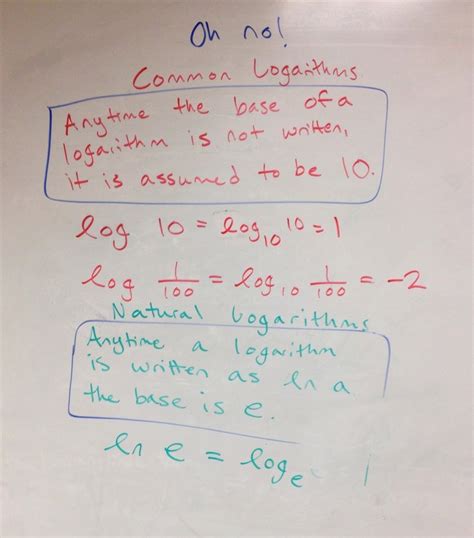 Oh no!
Common Logarithms
Anytime the base of a
logarithm is not written,
it is assumed to be 10.
log 10 = log₁₀ 10 = 1
log 1/100 = log₁₀ 1/100 = -2
Natural Logarithms
Anytime a logarithm
is written as ln a
the base is e.
ln e = logₑ 1